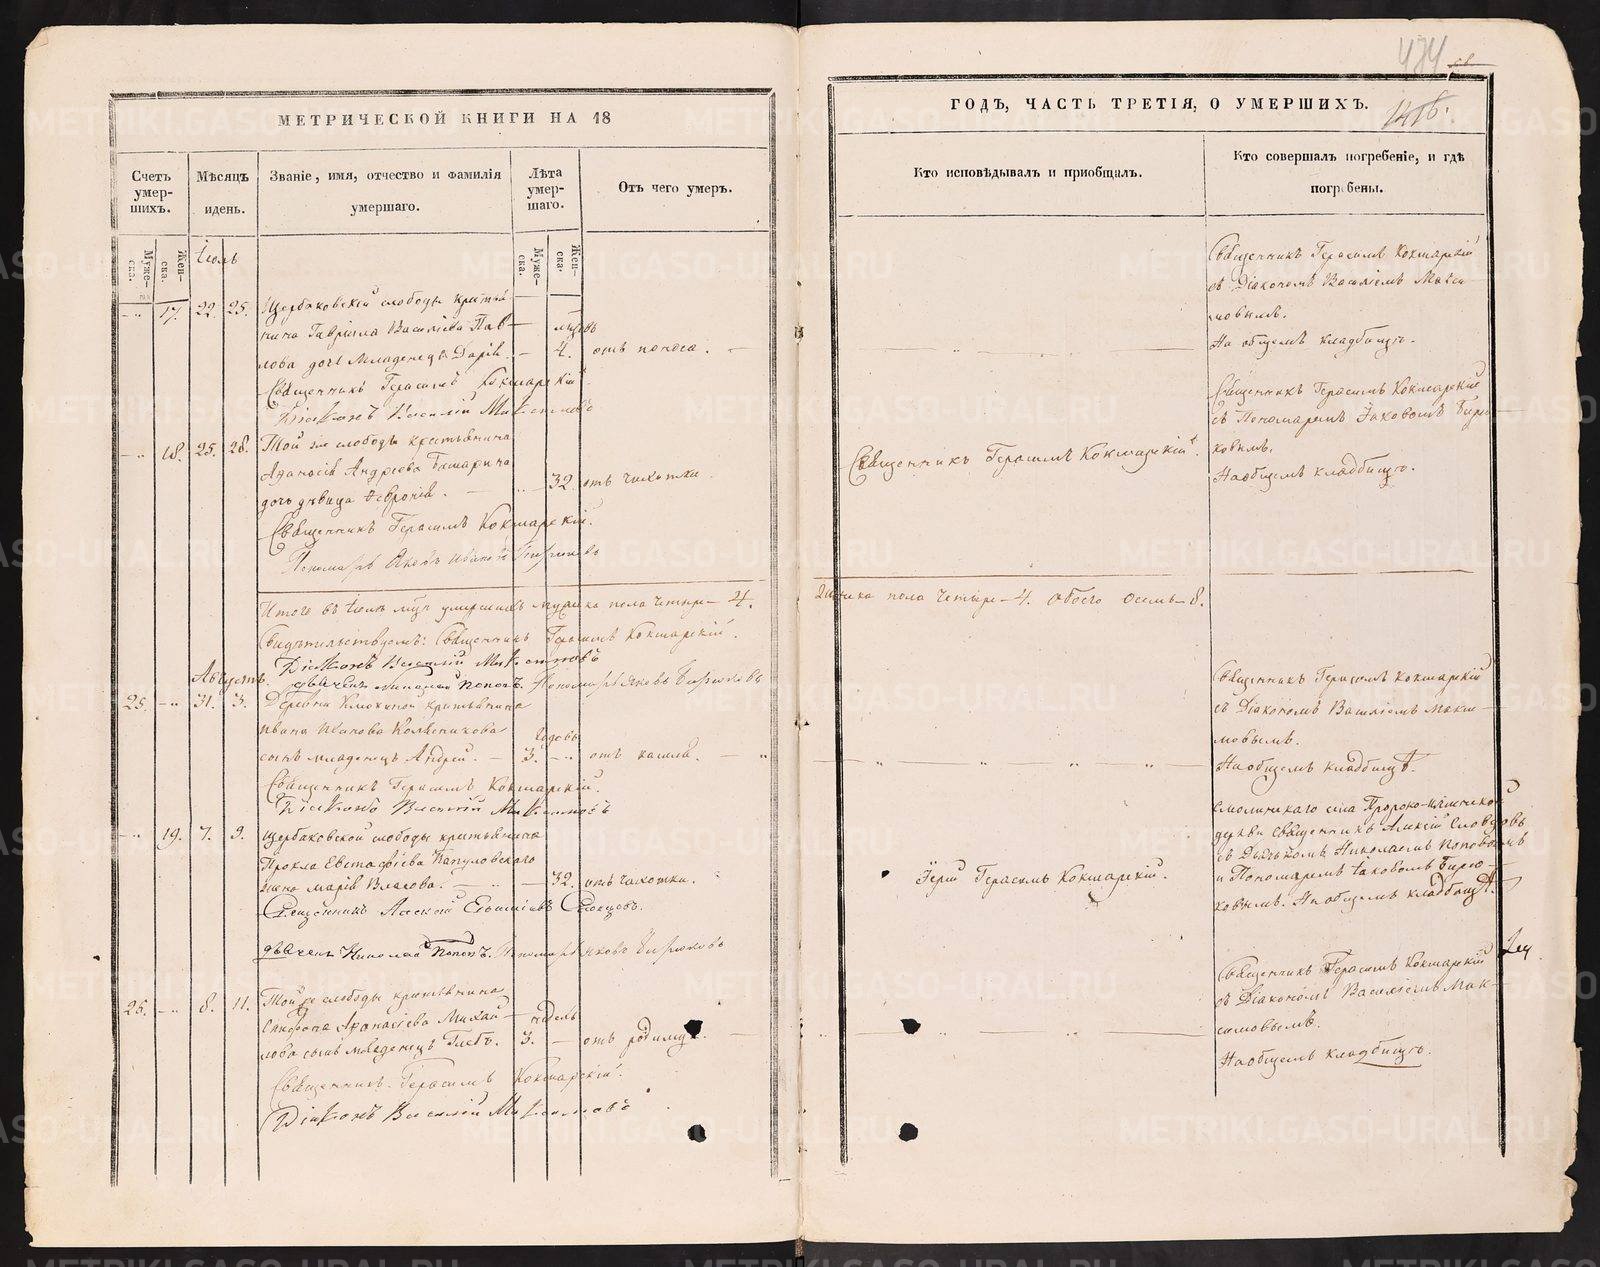 МЕТРИЧЕСКОЙ КНИГИ НА 18
Счетъ умер-шихъ.
Мѣсяцъ и день.
Званіе, имя, отчество и фамилія умершаго.
Лѣта умер-шаго.
Отъ чего умеръ.
Муже-ска.
Жен-ска.
Муже-ска.
Жен-ска.
Іюль
17. 22. 25. Щербаковской слободы крестья
нина Гавріила Васильева Пав-
мѣсяцъ
лова дочь младенецъ Дарія. 4. отъ поноса.
Священникъ Герасимъ Кокшарскій
Діаконъ Василій Максимовъ
18. 25. 28. Той же слободы крестьянина
Аѳанасія Андреева Башарина
дочь дѣвица Феѵронія. 32. отъ чахотки
Священникъ Герасимъ Кокшарскій.
Пономарь Яковъ Ивановъ Бирюковъ
Итого въ Іюль мцѣ умершихъ мужска пола четыре - 4.
Свидѣтельствуемъ: Священникъ Герасимъ Кокшарскій.
Діаконъ Василій Максимовъ
дьячекъ Николай Поповъ. Пономарь Яковъ Бирюковъ
Августъ.
25. 31. 3. Деревни крестьянина
Ивана Иванова Колесникова
годовъ
сынъ младенецъ Андрей. 3. отъ кашля.
Священникъ Герасимъ Кокшарскій.
Діаконъ Василій Максимовъ
19. 7. 9. Щербаковской слободы крестьянина
Прокла Евстафіева
жена Марія Власова. 32. отъ чахотки.
Священникъ Алексій Словцовъ.
дьячекъ Николай Поповъ. Пономарь Яковъ Бирюковъ
26. 8. 11. Той же слободы крестьянина
Аѳанасіева Михай-
недель
лова сынъ младенецъ Глебъ. 3. отъ родимца.
Священникъ Герасимъ Кокшарскій.
Діаконъ Василій Максимовъ
474
1416.
ГОДЪ, ЧАСТЬ ТРЕТІЯ, О УМЕРШИХЪ.
Кто исповѣдывалъ и пріобщалъ.
Кто совершалъ погребеніе, и гдѣ погребены.
Священникъ Герасимъ Кокшарскій
съ Діакономъ Василіемъ Макси-
мовымъ.
На общемъ кладбищѣ.
Священникъ Герасимъ Кокшарскій.
Священникъ Герасимъ Кокшарскій
съ Пономаремъ Іаковомъ Бирю-
ковымъ.
На общемъ кладбищѣ.
женска пола четыре - 4. обоего осемь - 8.
Священникъ Герасимъ Кокшарскій
съ Діакономъ Василіемъ Макси-
мовымъ.
На общемъ кладбищѣ.
Іерей Герасимъ Кокшарскій.
Смолинскаго села Пророко-Ильинской
церкви Священникъ Алексій Словцовъ
съ Дьячкомъ Николаемъ Поповымъ
и Пономаремъ Іаковомъ Бирю-
ковымъ. На общемъ кладбищѣ.
Священникъ Герасимъ Кокшарскій
съ Діакономъ Василіемъ Мак-
симовымъ.
На общемъ кладбищѣ.
METRIKI.GASO-URAL.RU